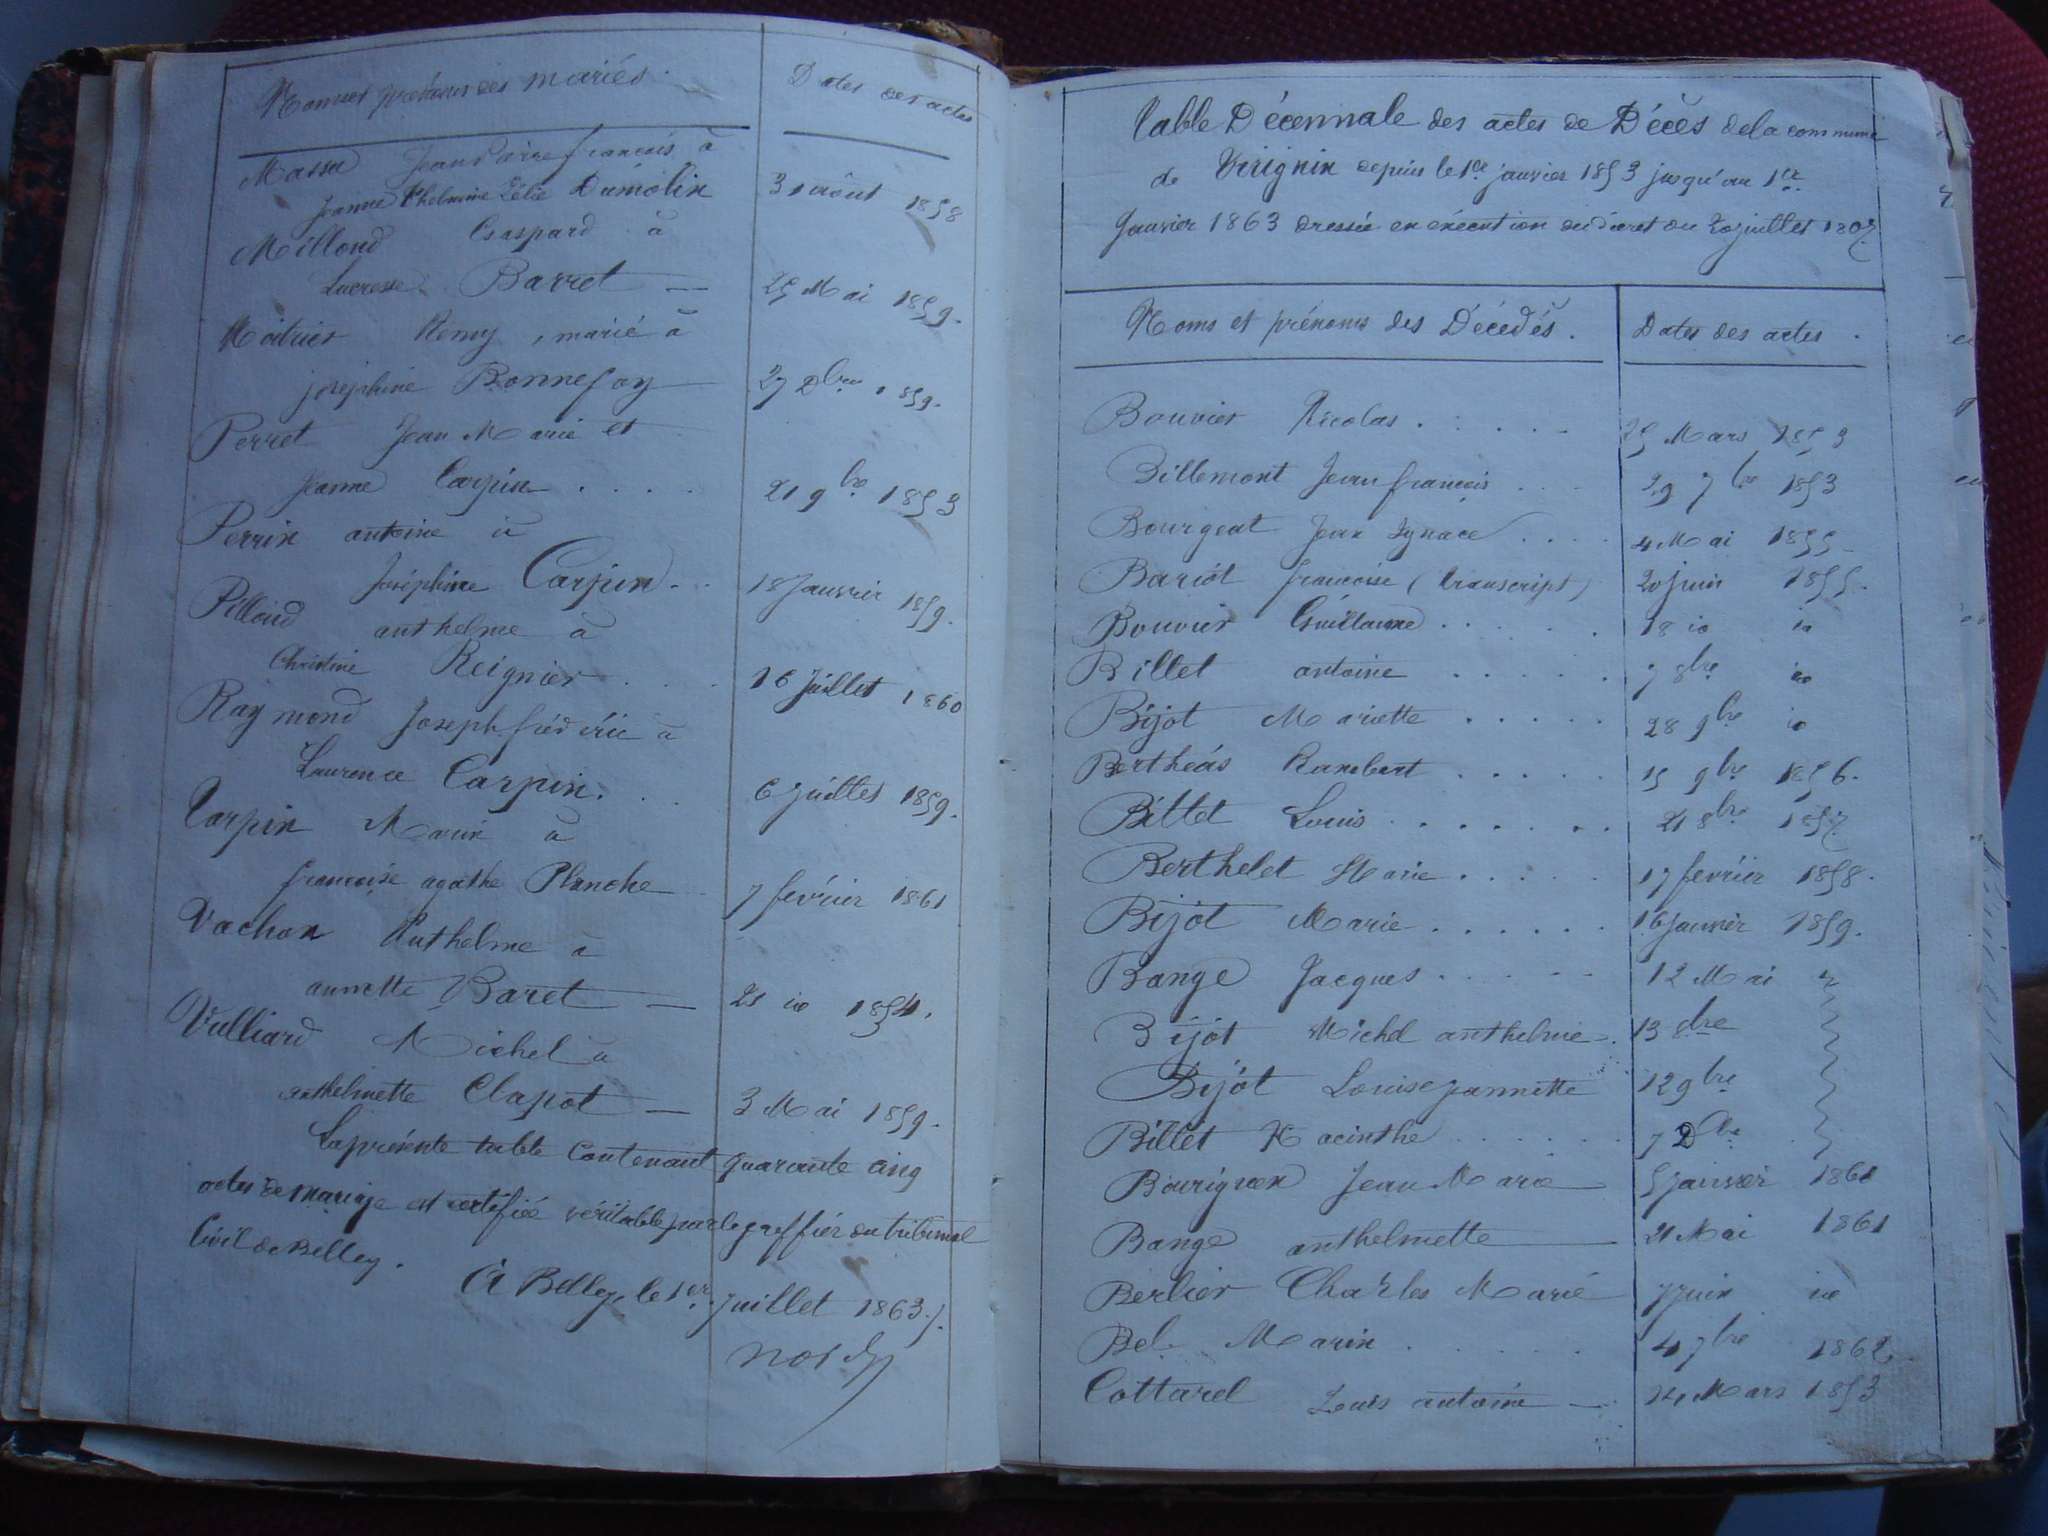 Noms et prénoms des mariés. Dates des actes
Massu Jean Pierre françois à
Jeanne thelmine Zélie Dumolin 3 août 1858
Millond Gaspard à
Lucresse Barret — 25 Mai 1859.
Noitrier Remy, marié à
joséphine Bonnefoy — 27 Dbre 1859.
Perret Jean Marie et
Jeanne Carpin . . . . 21 9bre 1853
Perrin antoine à
Joséphine Carpin . . . 18 Janvier 1859.
Pilloud anthelme à
Christine Reignier . . . 16 Juillet 1860
Raymond Joseph fréderic à
Laurence Carpin . . . 6 Juillet 1859.
Carpin Marin à
françoise agathe Planche 7 fevrier 1861
Vachon Anthelme à
annette Baret — 21 id 1854.
Vulliard Michel à
anthelmette Clapot — 3 Mai 1859.
La présente table contenant quarante cinq
actes de mariage est certifiée véritable par le greffier du tribunal
Civil de Belley.
A Belley, le 1er Juillet 1863./.
Table Décennale des actes de Décès de la commune
de Virignin depuis le 1er janvier 1853 jusqu'au 1er
Janvier 1863 dressée en exécution du décret du 20 juillet 1807
Noms et prénoms des Décédés. Dates des actes.
Bouvier Nicolas . . . . . 25 Mars 1853
Billemont Jean françois . . . 29 7bre 1853
Bourgeat Jean Ignace . . . . 4 Mai 1855
Bariot francoise (transcript) 20 juin 1855.
Bouvier Guillaume . . . . . 18 id id
Billet antoine . . . . . 7 8bre id
Bijot Mariette . . . . . 28 9bre id
Berthéas Rambert . . . . . 15 9bre 1856.
Billet Louis . . . . . . 21 8bre 1857
Berthelet Marie . . . . . 17 fevrier 1858.
Bijot Marie . . . . . . 16 janvier 1859.
Bange Jacques . . . . . 12 Mai "
Bijot Michel anthelme . 13 8bre
Bijot Louise jeannette 12 9bre
Billet Hacinthe . . . . . . 7 Dbre
Bourignon Jean Marie 5 janvier 1860
Bange anthelmette — 21 Mai 1861
Berlier Charles Marie 7 juin id
Bel Marin . . . . . 4 7bre 1862.
Cottarel Louis antoine — 24 Mars 1853